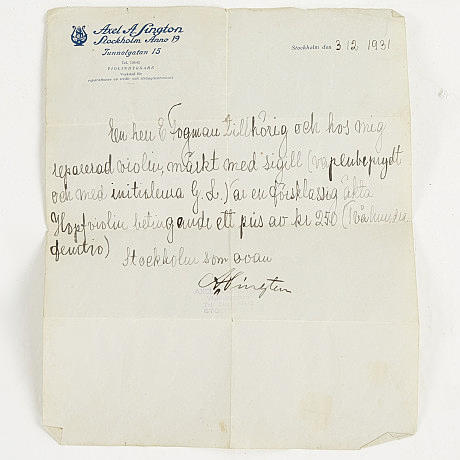 Axel A Sington
Stockholm Anno 19
Tunnelgatan 15
VIOLINBYGGARE
Verkstad för
Stockholm den 3 12 1931
En herr E Fogman tillhörig och hos mig
reparerad violin, märkt med sigill (vapenbeprydt
och med initialerna G. L.) är en förstklassig äkta
Hopfviolin betingande ett pris av kr 250 (Tvåhundra-
femtio)
Stockholm som ovan
A Sington